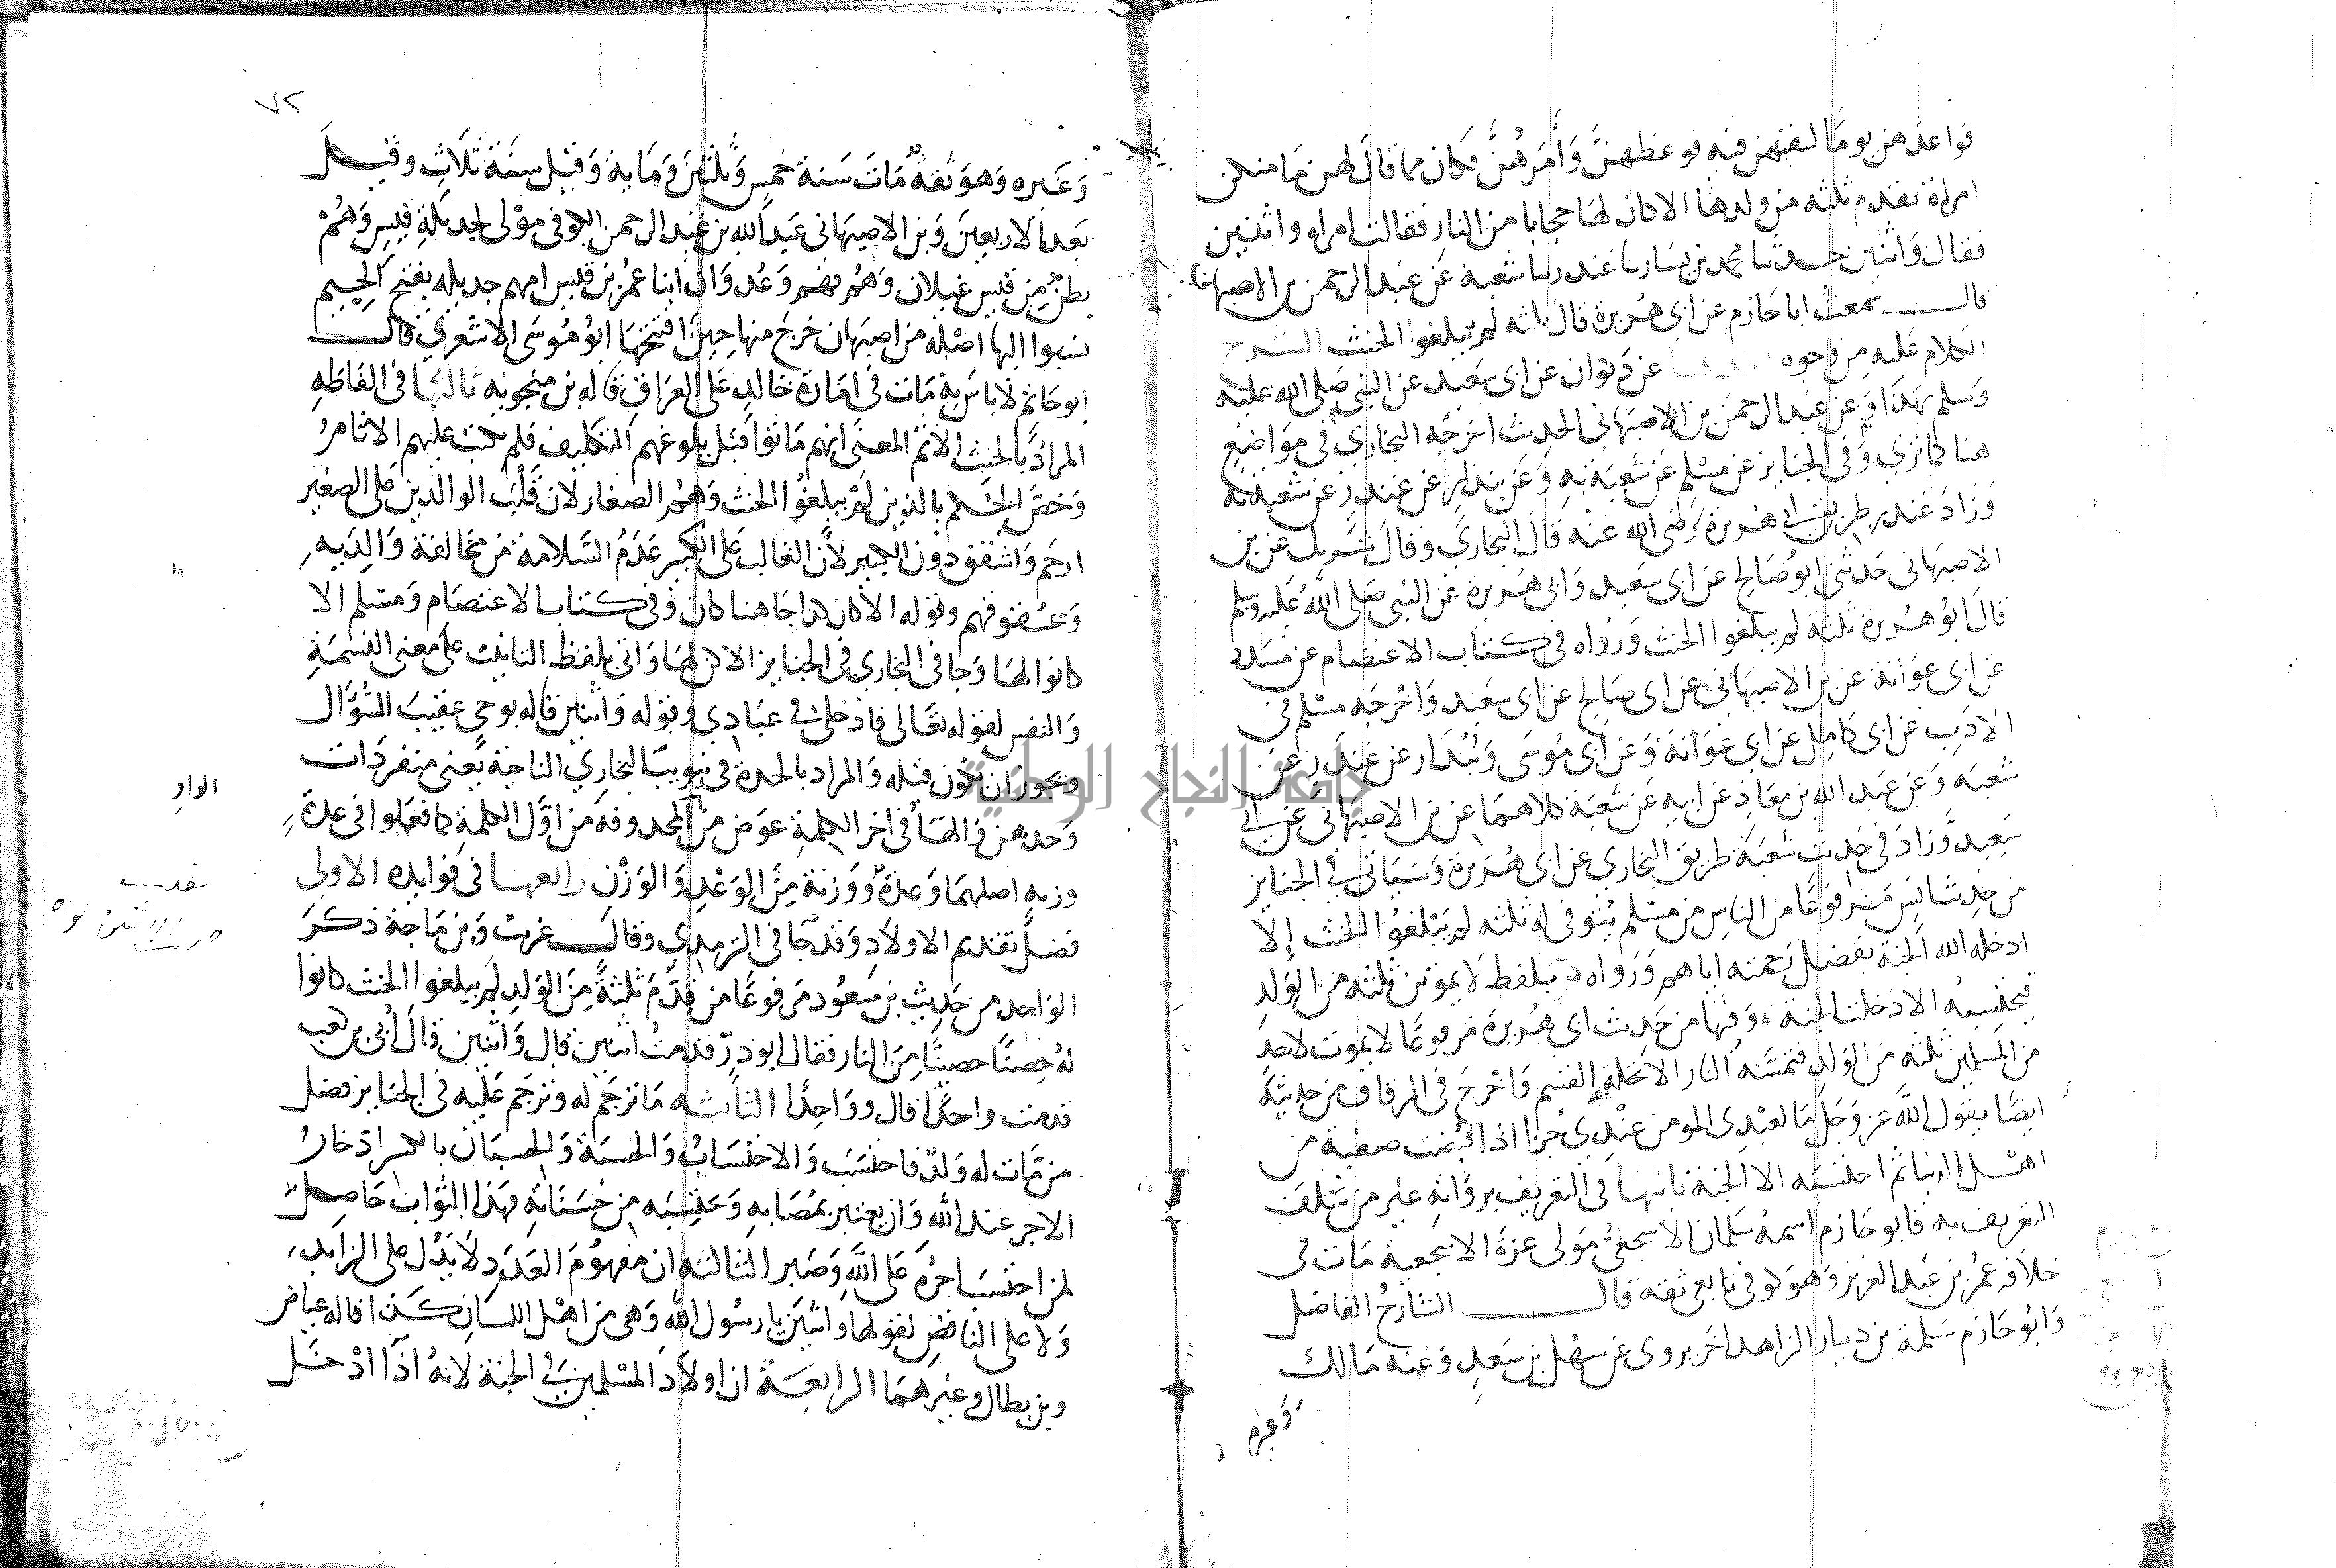 فواعدهن يوما لقيهن فيه فوعظهن وأمرهن فكان مما قال لهن ما منكن
امراة تقدم ثلثه من ولدها الا كان لها حجابا من النار فقالت امراه واثنين
فقال واثنين حدثنا محمد بن بشار نا غندر نا شعبة عن عبد الرحمن بن الاصبهاني
قال سمعت ابا حازم عن ابي هريرة قال ثلثه لم يبلغوا الحنث الشرح
الكلام عليه من وجوه عن ذكوان عن ابي سعيد عن النبي صلى الله عليه
وسلم بهذا وعن عبد الرحمن بن الاصبهاني الحديث اخرجه البخاري في مواضع
هنا كما ترى وفي الجنايز عن مسلم عن شعبة به وعن بندار عن غندر عن شعبة به
وزاد غندر طريق ابي هريرة رضى الله عنه قال البخاري وقال شريك عن بن
الاصبهاني حدثني ابو صالح عن ابي سعيد وابي هريرة عن النبي صلى الله عليه وسلم
قال ابو هريرة ثلثة لم يبلغوا الحنث ورواه في كتاب الاعتصام عن مسدد
عن ابى عوانة عن بن الاصبهاني عن ابى صالح عن ابى سعيد واخرجه مسلم في
الادب عن ابى كامل عن ابى عوانة وعن ابى موسى وبندار عن غندر عن
شعبه وعن عبد الله بن معاذ عن ابيه عن شعبة كلاهما عن بن الاصبهاني عن ابي
سعيد وزاد في حديث شعبة طريق البخاري عن ابى هريرة وسياتي في الجنايز
من حديث انس مرفوعا من الناس من مسلم يتوفى له ثلثه لم يبلغوا الحنث إلا
ادخله الله الجنة بفضل رحمته اياهم ورواه بلفظ لا يموتن ثلثه من الولد
فيحتسبه الا دخلت الجنة وفيها من حديث ابى هريرة مرفوعا لا يموت لاحد
من المسلمين ثلثه من الولد فتمسه النار الا تحلة القسم واخرج في الرقاق من حديثه
ايضا يقول الله عز وجل ما لعبدى المومن عندى جزا اذا قبضت صفيه من
اهل الدنيا ثم احتسبه الا الجنة ثانيها في التعريف برواته غير من سلف
التعريف به فابو حازم اسمه سلمان الاشجعي مولى عزة الاشجعية مات في
خلافه عمر بن عبد العزيز وهو كوفي تابعي ثقه قال الشارح الفاضل
وابو حازم سلمة بن دينار الزاهد اخر يروى عن سهل بن سعد وعنه مالك
وغيره
٧٢
وغيره وهو ثقة مات سنة خمس وثلثين ومايه وقيل سنة ثلاث وقيل
بعد الاربعين وبن الاصبهاني عبد الله بن عبد الرحمن الكوفي مولى لجديلة قيس وهم
بطن من قيس غيلان وهم فهم وعدوان ابنا عمر بن قيس امهم جديله بفتح الجيم
نسبوا اليها اصله من اصبهان خرج منها حين افتتحها ابو موسى الاشعري قال
ابو حاتم لا باس به مات في امارة خالد على العراق قاله بن منجويه ثالثها في الفاظه
المراد بالحنث الاثم المعنى انهم ماتوا قبل بلوغهم التكليف فلم يكتب عليهم الاثام
وخص الحكم بالذين لم يبلغوا الحنث وهم الصغار لان قلب الوالدين على الصغير
ارحم واشفق دون الكبير لأن الغالب على الكبير عدم السلامة من مخالفة والديه
وعقوقهم وقوله الا كان كذا جا هنا كان وفي كتاب الاعتصام ومسلم الا
كانوا لها وجا في البخاري في الجنايز الا كن لها واتى بلفظ التانيث على معنى النسمة
والنفس لقوله تعالى فادخلي في عبادي وقوله واثنين قاله بوحي عقيب السؤال
ويجوز ان يكون قبله والمراد بالحدة في تبويب البخاري الناحية يعني منفردات
الواو
وحدهن والهأ في اخر الكلمة عوض من المحذوفه من اول الكلمة كما فعلوا في عدة
وزنه اصلهما وعدة ووزنة من الوعد والوزن رابعها في فوايده الاولى
فضل تقديم الاولاد وقد جا في الترمذي وقال غريب وبن ماجة ذكر
الواحد من حديث بن مسعود مرفوعا من قدم ثلثة من الولد لم يبلغوا الحنث كانوا
له حصنا حصينا من النار فقال ابو ذر قدمت اثنين قال واثنين قال أبي بن كعب
قدمت واحدا قال وواحدا الثانيه ما ترجم له وترجم عليه في الجنايز فضل
من مات له ولد فاحتسب والاحتساب والحسبة والحسبان بالكسر ادخار
الاجر عند الله وان يعتبر بمصابه وتحتسبه من حسناته فهذا الثواب حاصل
لمن احتسب اجره على الله وصبر الثالثه ان مفهوم العدد لا يدل على الزايد
ولا على الناقص لقولها واثنين يا رسول الله وهي من اهل اللسان كذا قاله عياض
وبن بطال وغيرهما الرابعة ان اولاد المسلمين في الجنة لانه اذا ادخل
جامعة النجاح الوطنية